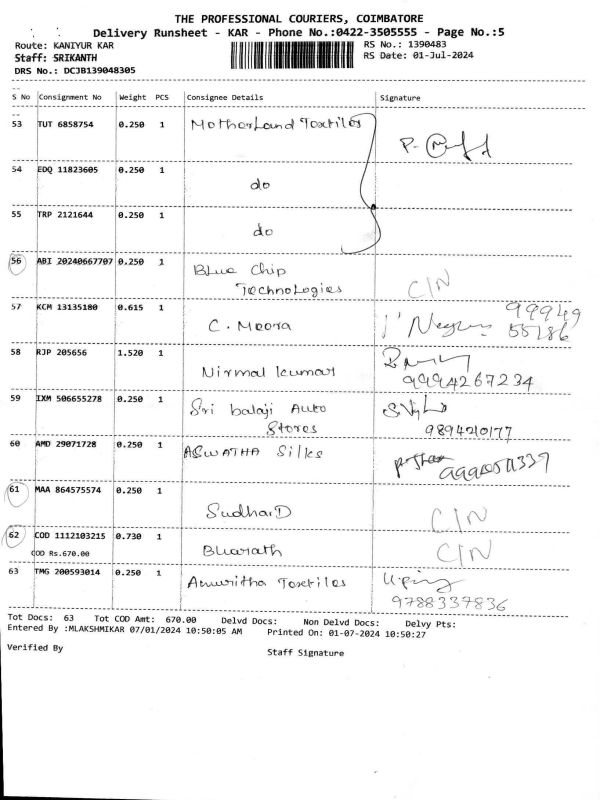 THE PROFESSIONAL COURIERS, COIMBATORE
Delivery Runsheet - KAR - Phone No.:0422-3505555 - Page No.:5
Route: KANIYUR KAR RS No.: 1390483
Staff: SRIKANTH RS Date: 01-Jul-2024
DRS No.: DCJB139048305
S No Consignment No Weight PCS Consignee Details Signature
53 TUT 6858754 0.250 1 Motherland Textiles
54 EDQ 11823605 0.250 1
do
55 TRP 2121644 0.250 1
do
56 ABI 20240667707 0.250 1 Blue Chip
Technologies C/N
57 KCM 13135180 0.615 1 C. Meera 99949
55786
58 RJP 205656 1.520 1
Nirmal kumar 9994267234
59 IXM 506655278 0.250 1 Sri balaji Auto
Stores 9894210177
60 AMD 29071728 0.250 1 ASWATHA Silks
61 MAA 864575574 0.250 1
Sudhar D C/N
62 COD 1112103215 0.730 1
COD Rs.670.00 Bharath C/N
63 TMG 200593014 0.250 1 Amuritha Textiles
9788337836
Tot Docs: 63 Tot COD Amt: 670.00 Delvd Docs: Non Delvd Docs: Delvy Pts:
Entered By :MLAKSHMIKAR 07/01/2024 10:50:05 AM Printed On: 01-07-2024 10:50:27
Verified By Staff Signature